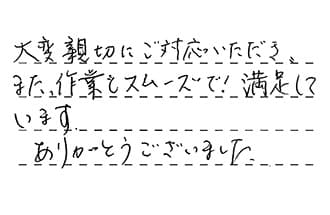 大変親切にご対応いただき、
また、作業もスムーズで！満足して
います。
ありがとうございました